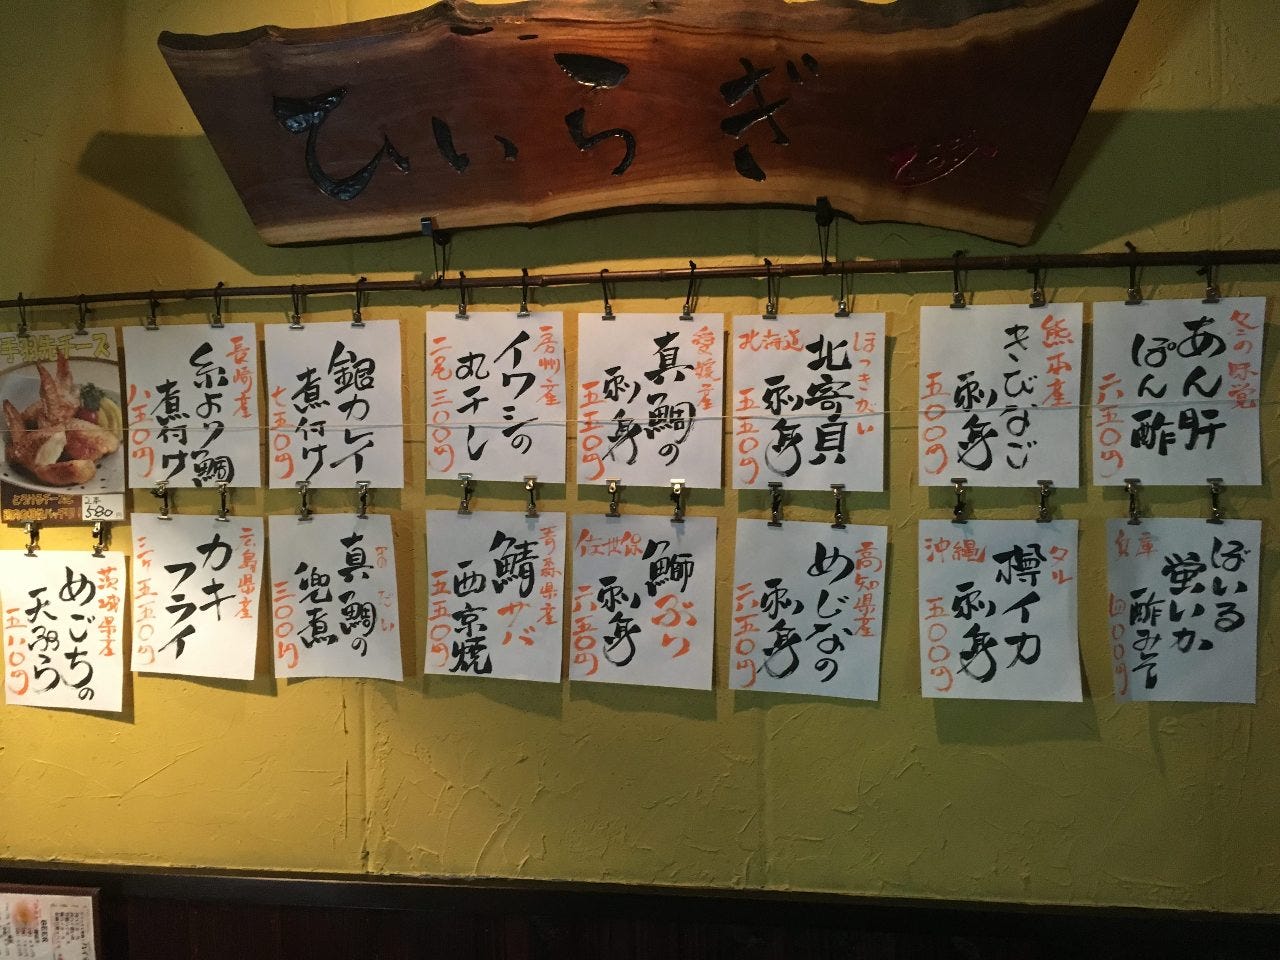 ひいらぎ
冬の味覚
あん肝
ぽん酢
六五〇円
熊本産
きびなご
刺身
五〇〇円
ほっきがい
北寄貝
刺身
北海道
五五〇円
愛媛産
真鯛の
刺身
五五〇円
房州産
イワシの
丸干し
二尾三〇〇円
銀カレイ
煮付け
七五〇円
長崎産
糸より鯛
煮付け
八五〇円
手羽先チーズ
2本
580円
ぼいる
蛍いか
酢みそ
兵庫
四〇〇円
タル
樽イカ
刺身
沖縄
五〇〇円
高知県産
めじなの
刺身
六五〇円
鰤ぶり
刺身
佐世保
六五〇円
青森県産
鯖サバ
西京焼
五五〇円
まのだい
真鯛の
兜煮
三〇〇円
広島県産
カキ
フライ
三ケ五五〇円
茨城県産
めごちの
天ぷら
五八〇円
BEER